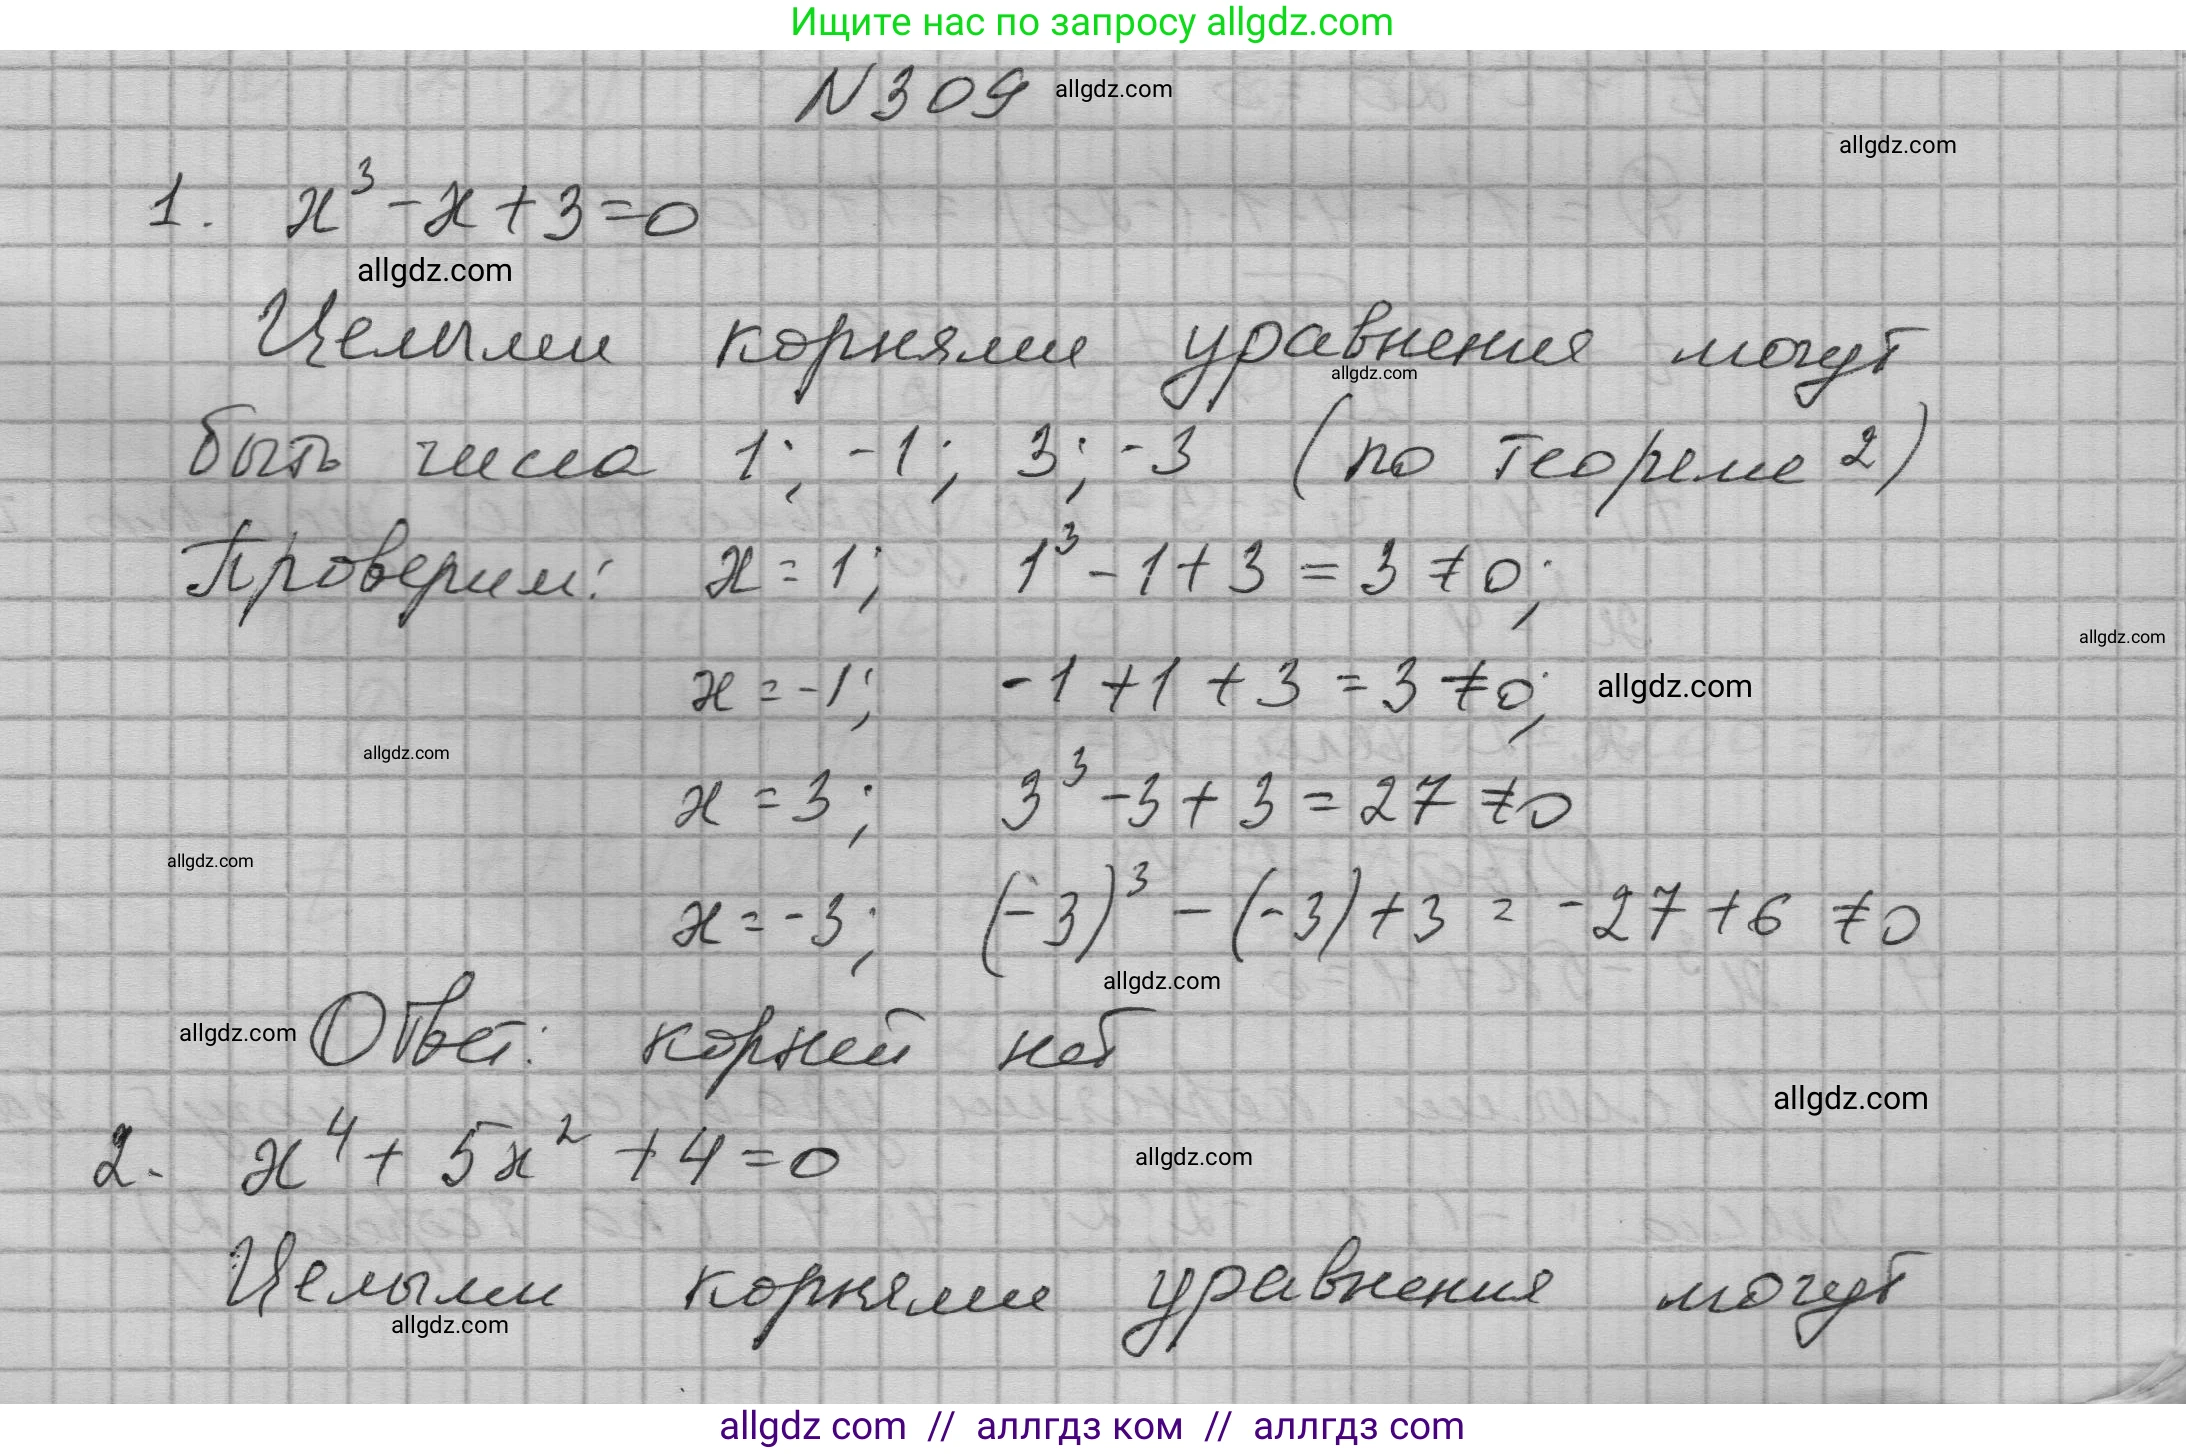 Ищите нас по запросу allgdz.com
N309 allgdz.com
allgdz.com
1. x³ - x + 3 = 0
allgdz.com
Целыми корнями уравнения могут
allgdz.com
быть числа 1; -1; 3; -3 (по теореме 2)
Проверим: x = 1; 1³ - 1 + 3 = 3 ≠ 0;
allgdz.com
x = -1; -1 + 1 + 3 = 3 ≠ 0; allgdz.com
allgdz.com
x = 3; 3³ - 3 + 3 = 27 ≠ 0
allgdz.com
x = -3; (-3)³ - (-3) + 3 = -27 + 6 ≠ 0
allgdz.com
allgdz.com Ответ: корней нет
allgdz.com
2. x⁴ + 5x² + 4 = 0 allgdz.com
Целыми корнями уравнения могут
allgdz.com
allgdz com // аллгдз ком // аллгдз com